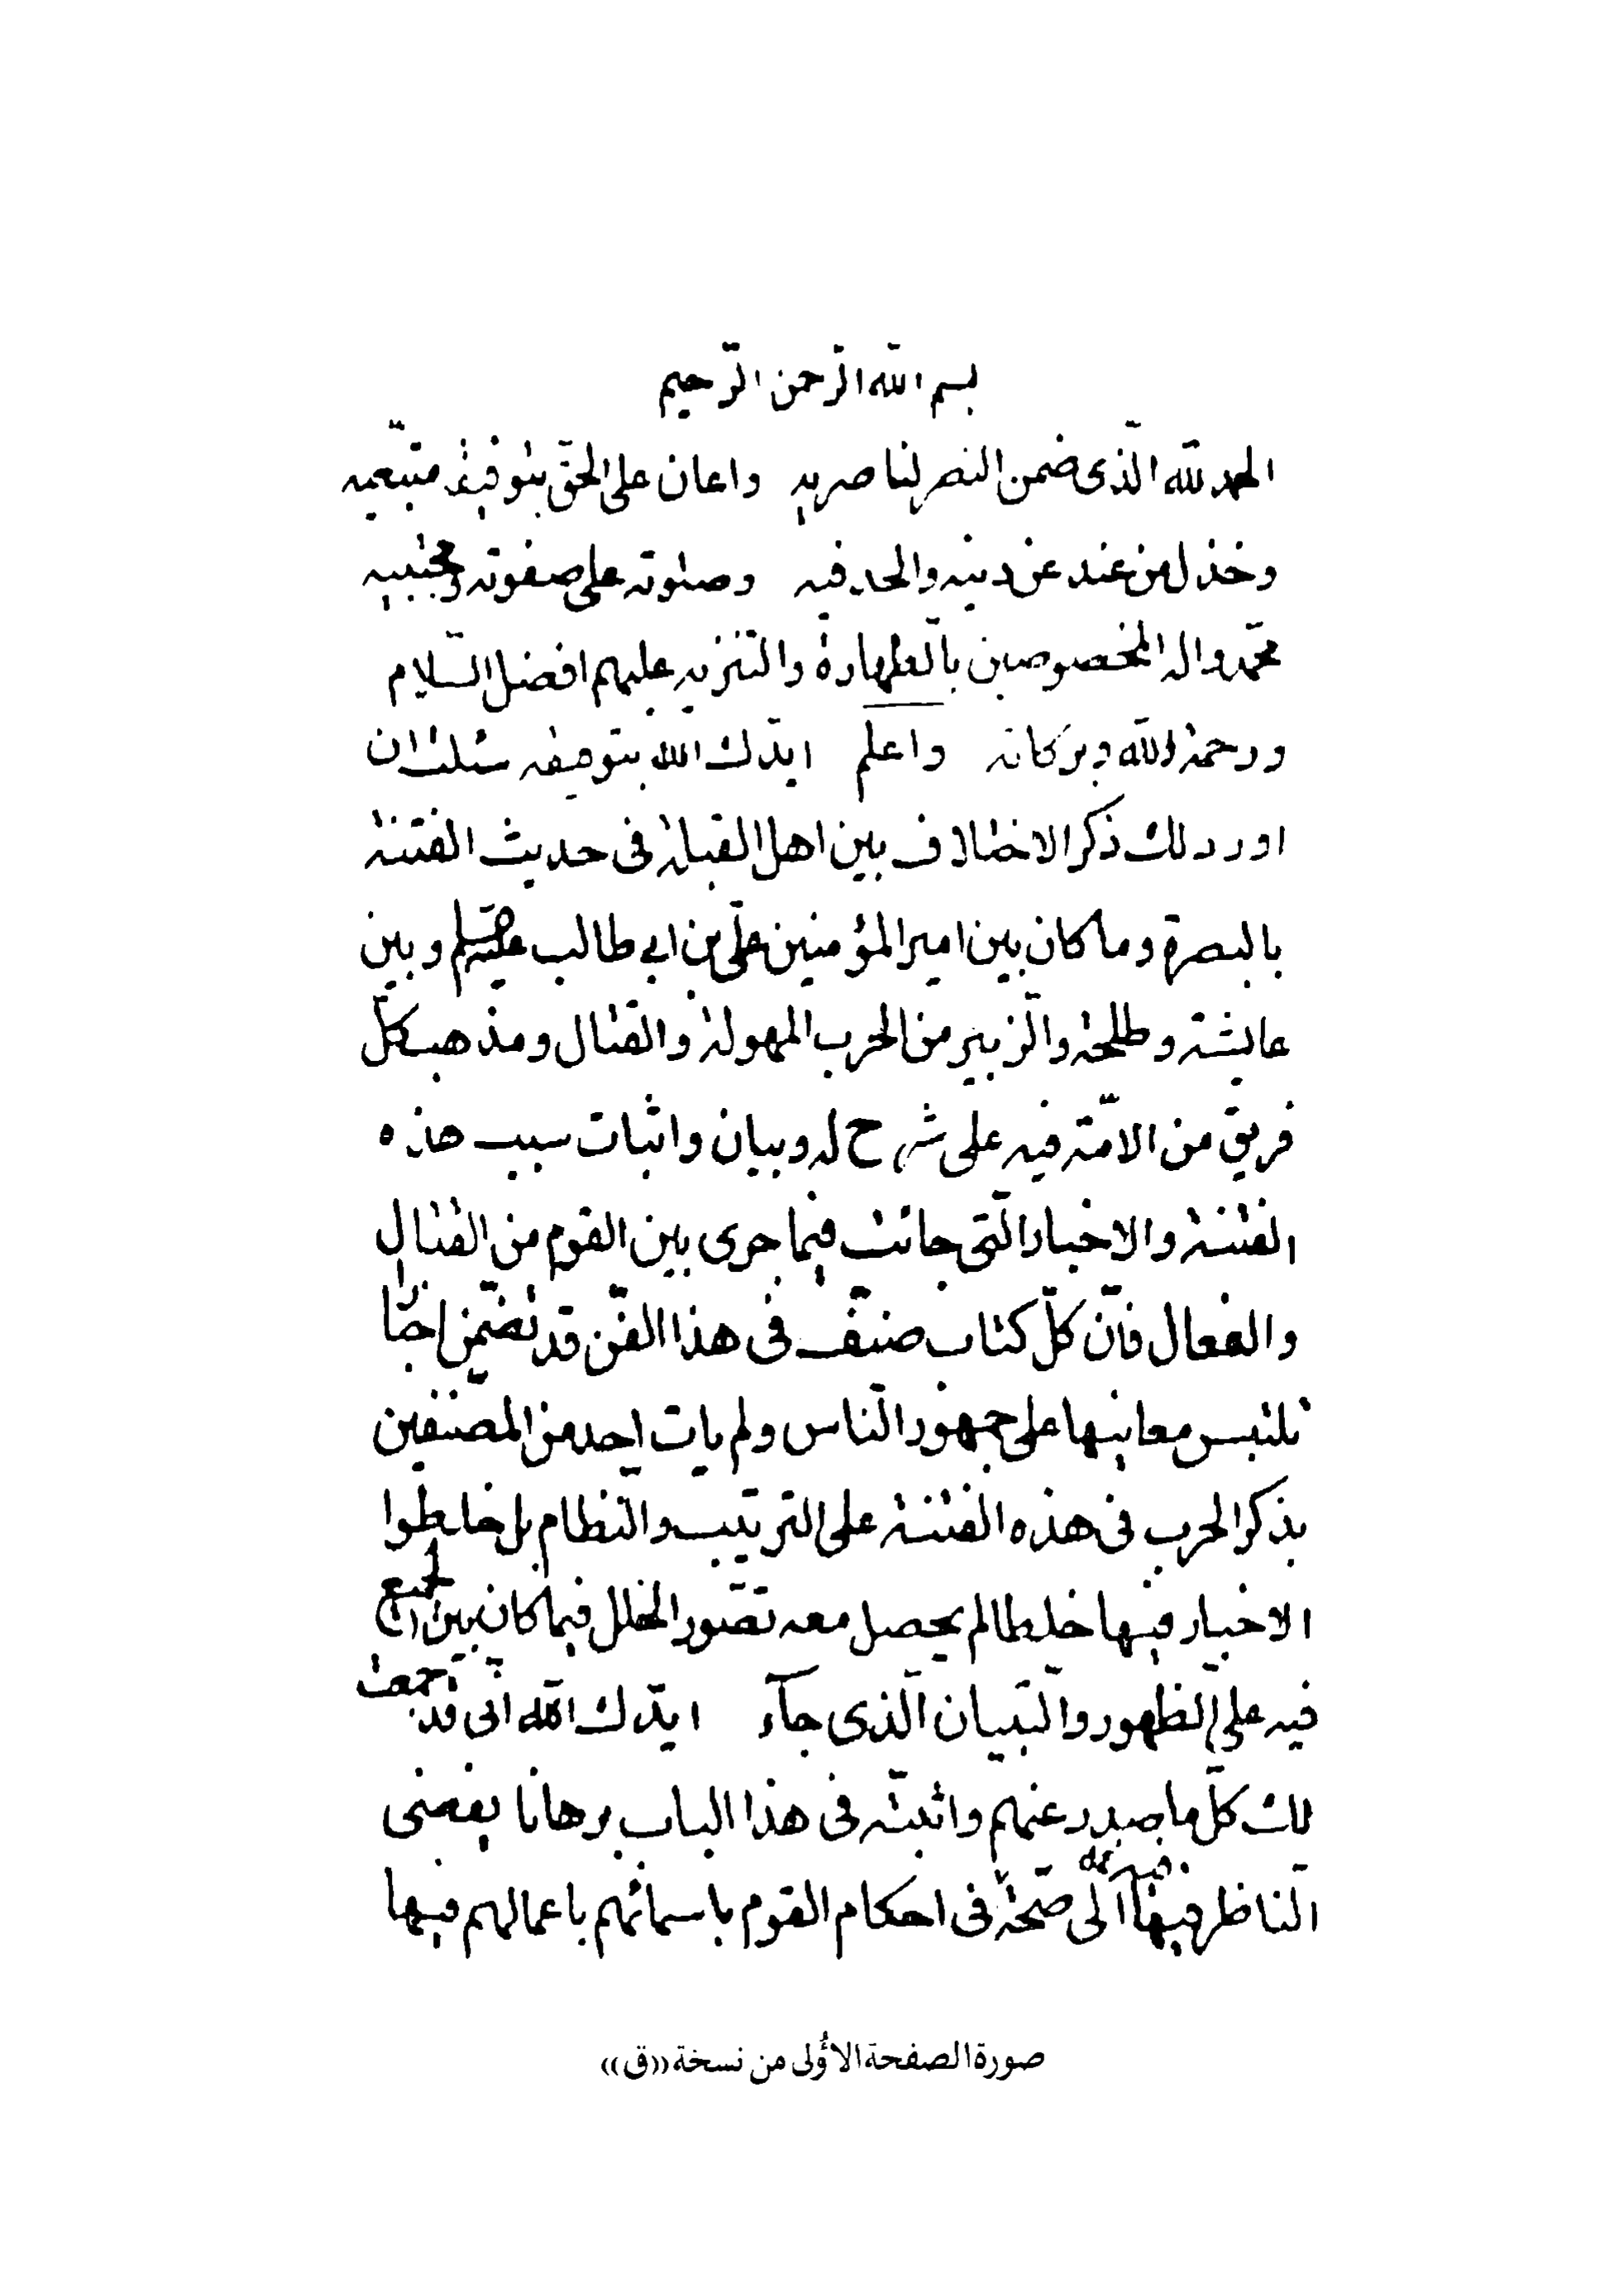 بسم الله الرّحمن الرّحيم
الحمد لله الّذى ضمن النصر لناصريه واعان على الحقّ بتوفيقه متّبعيه
وخذل من عند عن دينه والحد فيه وصلوته على صفوته ومجتبيه
محمّد واله المخصوصين بالطهارة والتنزيه عليهم افضل السّلام
ورحمة الله وبركاته واعلم ايدّك الله بتوفيقه سئلت ان
اورد لك ذكر الاختلاف بين اهل القبلة فى حديث الفتنة
بالبصرة وما كان بين امير المؤمنين علىّ بن ابى طالب وبين
عايشة وطلحة والزّبير من الحرب المهولة والقتال ومذهب كلّ
فريق من الامّة فيه على شرح له وبيان واثبات سبب هذه
الفتنة والاخبار الّتى جائت فيما جرى بين القوم من القتال
والفعال فانّ كلّ كتاب صنّف فى هذا الفنّ قد تضمّن اخبارا
تلتبس معانيها على جمهور النّاس ولم يات احد من المصنّفين
بذكر الحرب فى هذه الفتنة على الترتيب والنظام بل خلطوا
الاخبار فيها خلطا لم يحصل معه تصّور الخلل فيما كان بين الجميع
فيه على الظّهور والتبيان الّذى جآء ايدّك الله انى قد جمعت
لك كلّ ما صدر عنهم واثبتّه فى هذا الباب برهانا يفضى
النّاظر فيه الى صحّة فى احكام القوم باسمائهم باعمالهم فيها
صورة الصفحة الأُولى من نسخة «ق»